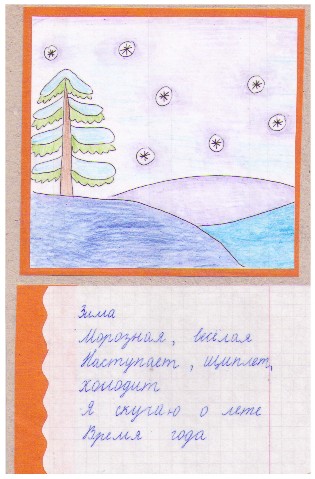 Зима
Морозная, весёлая
Наступает, щиплет,
холодит
Я скучаю о лете
Время года